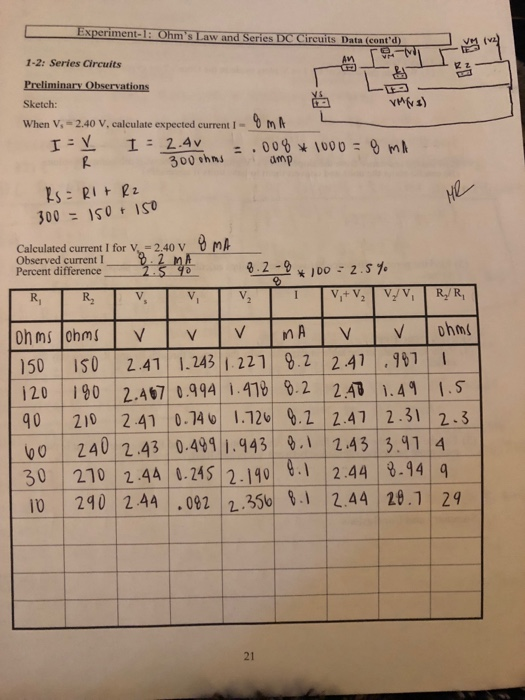 Experiment-1: Ohm's Law and Series DC Circuits Data (cont'd)
VM (V2)
AM
VM (V1)
1-2: Series Circuits
R1
R2
Preliminary Observations
VS
VM(VS)
Sketch:
When Vs = 2.40 V, calculate expected current I = 8 mA
I = V/R I = 2.4V/300 ohms = .008 amp * 1000 = 8 mA
RS = R1 + R2
300 = 150 + 150
Calculated current I for Vs = 2.40 V 8 mA
Observed current I 8.2 mA
Percent difference 2.5 % 8.2-8/8 * 100 = 2.5%
R1 R2 Vs V1 V2 I V1+ V2 V2/ V1 R2/ R1
Ohms Ohms V V V mA V V ohms
150 150 2.47 1.243 1.227 8.2 2.47 .987 1
120 180 2.467 0.994 1.478 8.2 2.47 1.49 1.5
90 210 2.47 0.746 1.726 8.2 2.47 2.31 2.3
60 240 2.43 0.489 1.943 8.1 2.43 3.97 4
30 270 2.44 0.245 2.190 8.1 2.44 8.94 9
10 290 2.44 .082 2.356 8.1 2.44 28.7 29
21